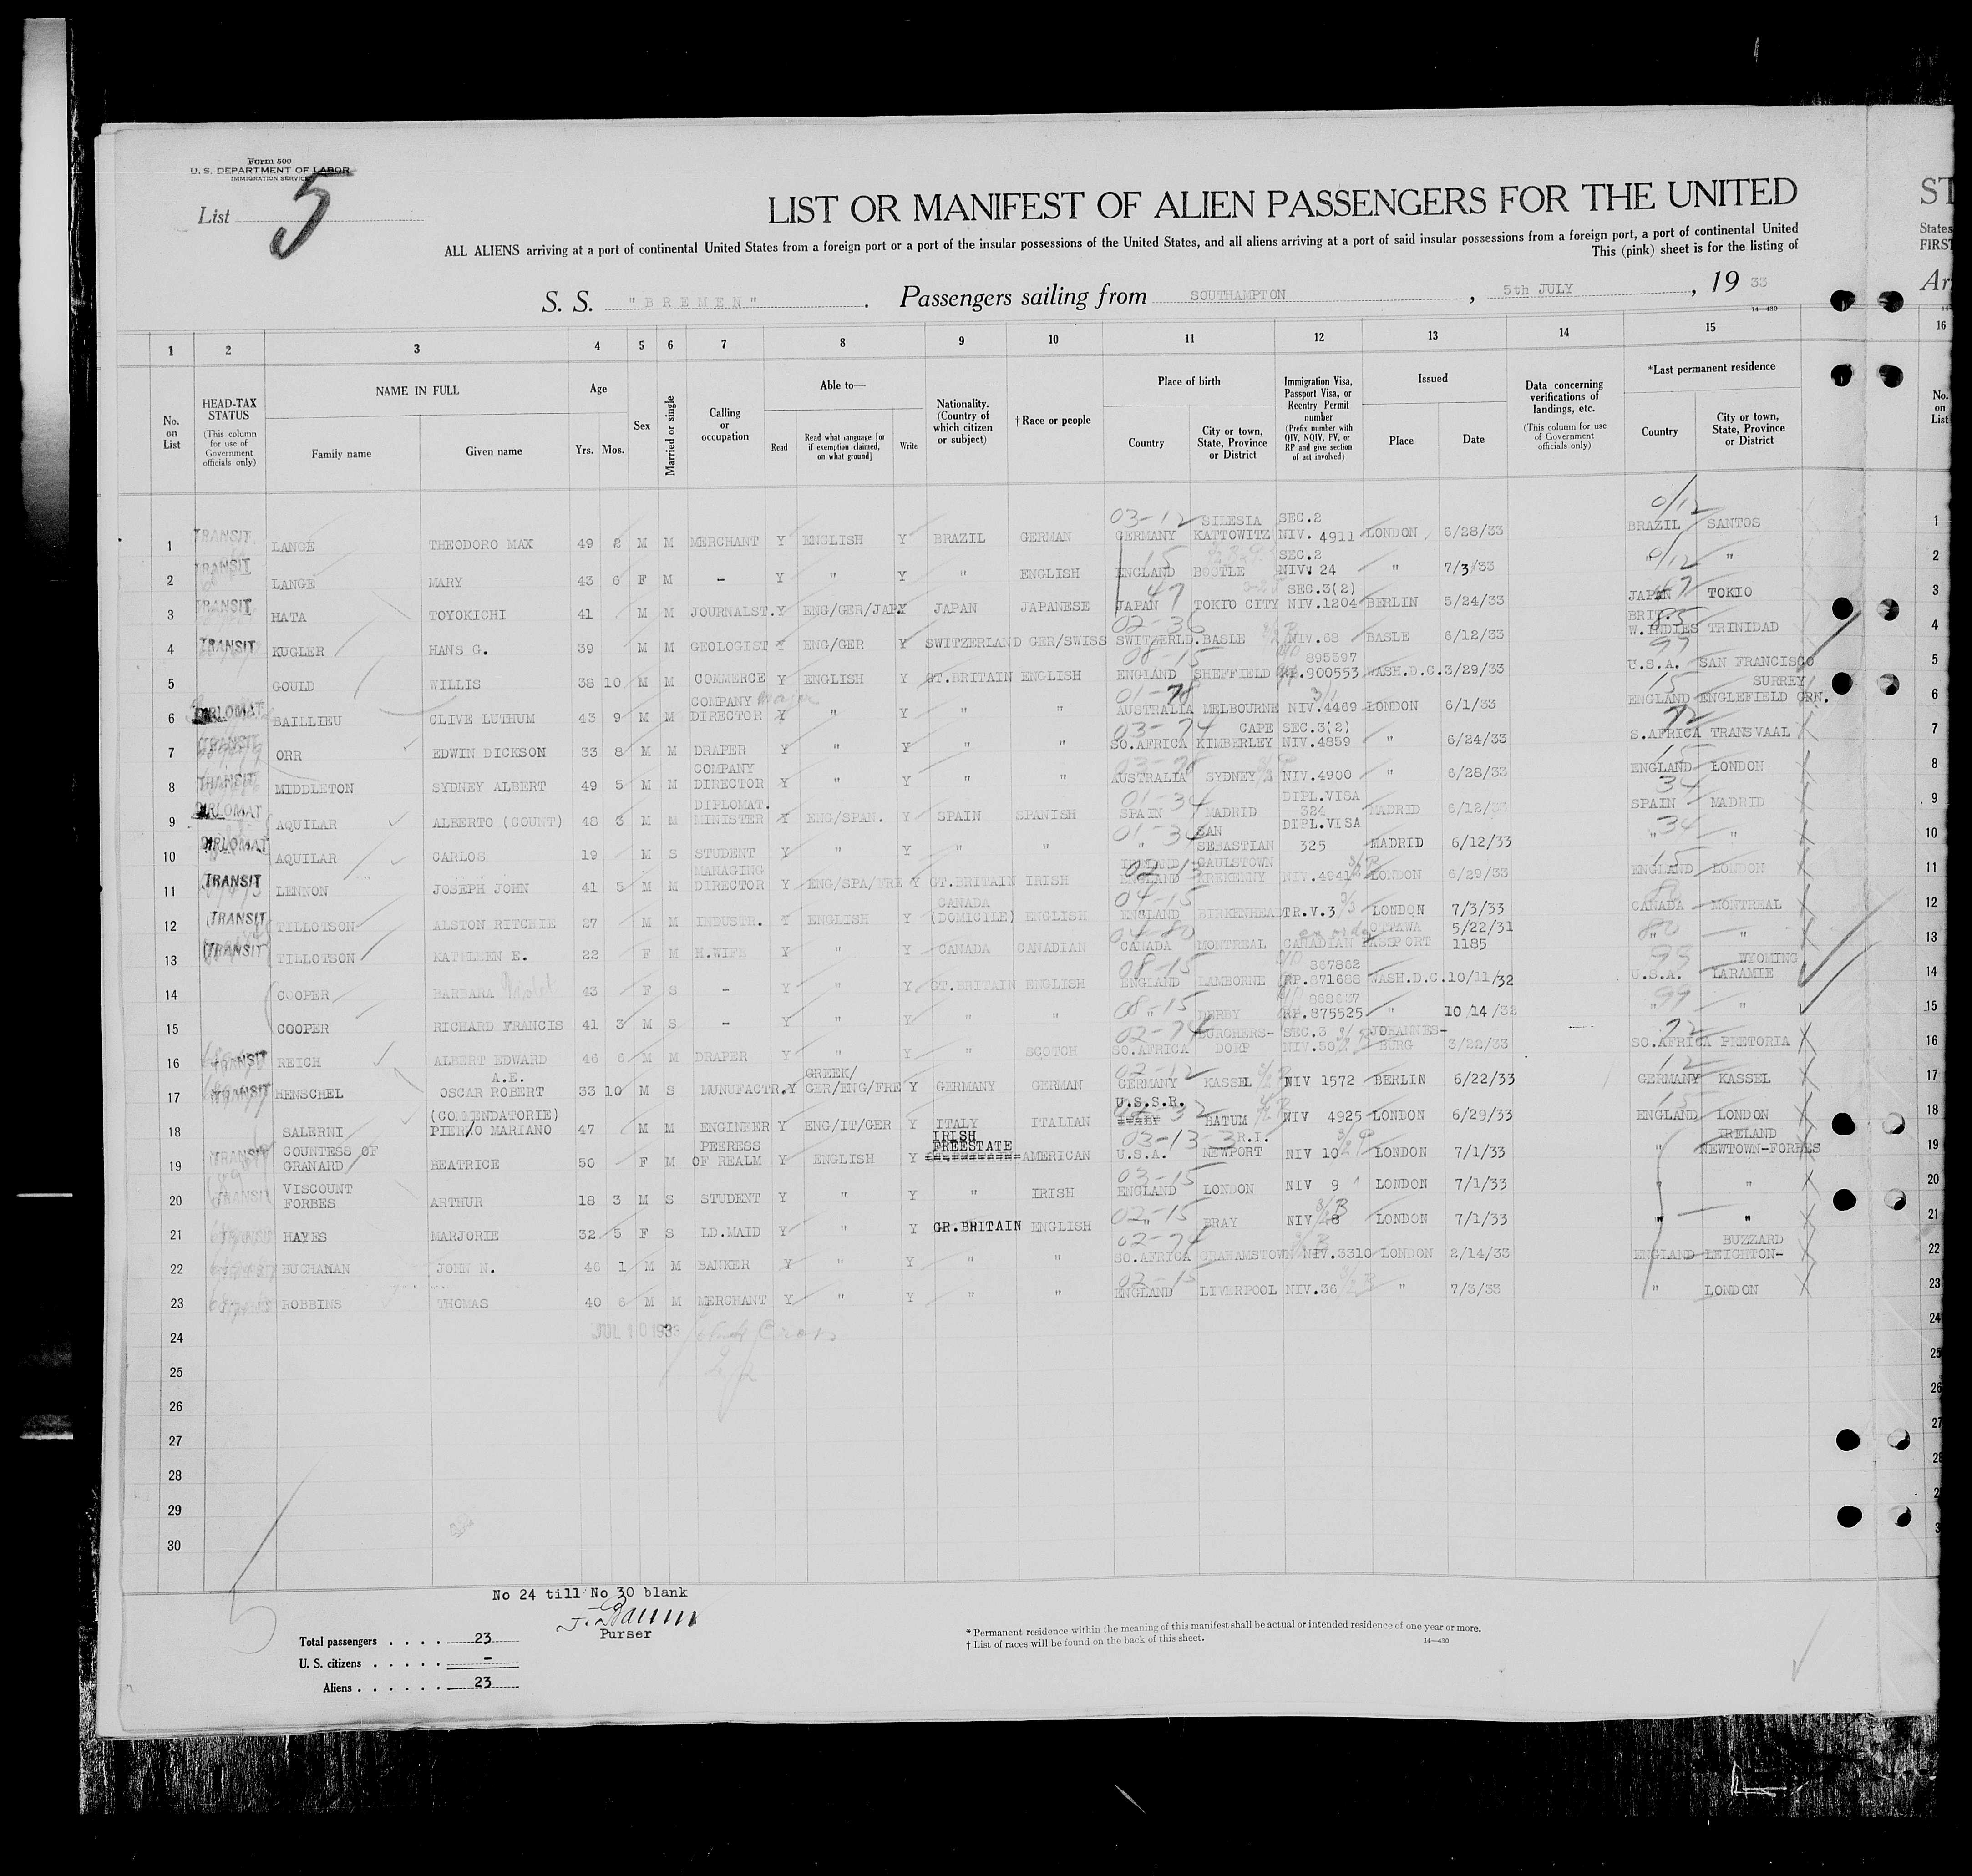 Form 500
U. S. DEPARTMENT OF LABOR
IMMIGRATION SERVICE
List 5
LIST OR MANIFEST OF ALIEN PASSENGERS FOR THE UNITED
ALL ALIENS arriving at a port of continental United States from a foreign port or a port of the insular possessions of the United States, and all aliens arriving at a port of said insular possessions from a foreign port, a port of continental United
This (pink) sheet is for the listing of
S. S. "BREMEN". Passengers sailing from SOUTHAMPTON, 5th JULY, 19 33
14—430
1 2 3 4 5 6 7 8 9 10 11 12 13 14 15 16
No. on List
HEAD-TAX STATUS (This column for use of Government officials only)
NAME IN FULL
Family name
Given name
Age
Yrs. Mos.
Sex
Married or single
Calling or occupation
Able to—
Read
Read what language [or if exemption claimed, on what ground]
Write
Nationality. (Country of which citizen or subject)
†Race or people
Place of birth
Country
City or town, State, Province or District
Immigration Visa, Passport Visa, or Reentry Permit number (Prefix number with QIV, NQIV, PV, or RP and give section of act involved)
Issued
Place
Date
Data concerning verifications of landings, etc. (This column for use of Government officials only)
*Last permanent residence
Country
City or town, State, Province or District
No. on List
1 TRANSIT LANGE THEODORO MAX 49 8 M M MERCHANT Y ENGLISH Y BRAZIL GERMAN 03-12 GERMANY SILESIA KATTOWITZ SEC.2 NIV. 4911 LONDON 6/28/33 0/12 BRAZIL SANTOS 1
2 TRANSIT LANGE MARY 43 6 F M - Y " Y " ENGLISH 15 ENGLAND BOOTLE SEC.2 NIV. 24 " 7/3/33 0/12 " 2
3 TRANSIT HATA TOYOKICHI 41 M M JOURNALST. Y ENG/GER/JAP Y JAPAN JAPANESE 47 JAPAN TOKIO CITY SEC.3(2) NIV.1204 BERLIN 5/24/33 47 JAPAN TOKIO 3
4 TRANSIT KUGLER HANS G. 39 M M GEOLOGIST Y ENG/GER Y SWITZERLAND GER/SWISS 02-36 SWITZERLD. BASLE NIV.68 BASLE 6/12/33 85 BRIT. W.INDIES TRINIDAD 4
5 GOULD WILLIS 38 10 M M COMMERCE Y ENGLISH Y GT.BRITAIN ENGLISH 08-15 ENGLAND SHEFFIELD 895597 RP.900553 WASH.D.C. 3/29/33 99 U.S.A. SAN FRANCISCO 5
6 DIPLOMAT BAILLIEU CLIVE LUTHUM 43 9 M M COMPANY DIRECTOR Y " Y " " 01-78 AUSTRALIA MELBOURNE 3/1 NIV.4469 LONDON 6/1/33 15 ENGLAND SURREY ENGLEFIELD GRN. 6
7 TRANSIT ORR EDWIN DICKSON 33 8 M M DRAPER Y " Y " " 03-74 SO.AFRICA CAPE KIMBERLEY SEC.3(2) NIV.4859 " 6/24/33 72 S.AFRICA TRANSVAAL 7
8 TRANSIT MIDDLETON SYDNEY ALBERT 49 5 M M COMPANY DIRECTOR Y " Y " " 03-78 AUSTRALIA SYDNEY NIV.4900 " 6/28/33 15 ENGLAND LONDON 8
9 DIPLOMAT AQUILAR ALBERTO (COUNT) 48 3 M M DIPLOMAT. MINISTER Y ENG/SPAN. Y SPAIN SPANISH 01-34 SPAIN MADRID DIPL.VISA 324 MADRID 6/12/33 34 SPAIN MADRID 9
10 DIPLOMAT AQUILAR CARLOS 19 M S STUDENT Y " Y " " 01-34 " SAN SEBASTIAN DIPL.VISA 325 MADRID 6/12/33 34 " " 10
11 TRANSIT LENNON JOSEPH JOHN 41 5 M M MANAGING DIRECTOR Y ENG/SPA/FRE Y GT.BRITAIN IRISH 02-13 ENGLAND GAULSTOWN NIV.4941 LONDON 6/29/33 15 ENGLAND LONDON 11
12 TRANSIT TILLOTSON ALSTON RITCHIE 27 M M INDUSTR. Y ENGLISH Y CANADA (DOMICILE) ENGLISH 04-15 ENGLAND BIRKENHEAD TR.V.3 3/3 LONDON 7/3/33 80 CANADA MONTREAL 12
13 TRANSIT TILLOTSON KATHLEEN E. 22 F M H.WIFE Y " Y CANADA CANADIAN 04-80 CANADA MONTREAL CANADIAN PASSPORT OTTAWA 5/22/31 1185 80 " " 13
14 COOPER BARBARA Violet 43 F S - Y " Y GT.BRITAIN ENGLISH 08-15 ENGLAND LAMBORNE 867862 RP.871688 WASH.D.C. 10/11/32 99 U.S.A. WYOMING LARAMIE 14
15 COOPER RICHARD FRANCIS 41 3 M S - Y " Y " " 08-15 " DERBY 868637 RP.875525 " 10/14/32 99 " " 15
16 TRANSIT REICH ALBERT EDWARD 46 6 M M DRAPER Y " Y " SCOTCH 02-74 SO.AFRICA BURGHERS-DORP SEC.3 NIV.50 JOHANNES-BURG 3/22/33 72 SO.AFRICA PRETORIA 16
17 TRANSIT HENSCHEL A.E. OSCAR ROBERT 33 10 M S MUNUFACTR. Y GREEK/ GER/ENG/FRE Y GERMANY GERMAN 02-12 GERMANY KASSEL NIV 1572 BERLIN 6/22/33 12 GERMANY KASSEL 17
18 SALERNI (COMMENDATORIE) PIERO MARIANO 47 M M ENGINEER Y ENG/IT/GER Y ITALY ITALIAN 02-32 U.S.S.R. BATUM NIV 4925 LONDON 6/29/33 15 ENGLAND LONDON 18
19 TRANSIT COUNTESS OF GRANARD BEATRICE 50 F M PEERESS OF REALM Y ENGLISH Y IRISH FREESTATE AMERICAN 03-13 U.S.A. R.I. NEWPORT NIV 10 LONDON 7/1/33 " IRELAND NEWTOWN-FORBES 19
20 TRANSIT VISCOUNT FORBES ARTHUR 18 3 M S STUDENT Y " Y " IRISH 03-15 ENGLAND LONDON NIV 9 LONDON 7/1/33 " " 20
21 TRANSIT HAYES MARJORIE 32 5 F S LD.MAID Y " Y GR.BRITAIN ENGLISH 02-15 " BRAY NIV 8 LONDON 7/1/33 " " 21
22 BUCHANAN JOHN N. 46 1 M M BANKER Y " Y " " 02-74 SO.AFRICA GRAHAMSTOWN NIV.3310 LONDON 2/14/33 ENGLAND BUZZARD LEIGHTON- 22
23 ROBBINS THOMAS 40 6 M M MERCHANT Y " Y " " 02-15 ENGLAND LIVERPOOL NIV.36 " 7/3/33 " LONDON 23
24 JUL 10 1933 24
25 25
26 26
27 27
28 28
29
30
No 24 till No 30 blank
Purser
Total passengers . . . . 23
U. S. citizens . . . . . -
Aliens . . . . . . 23
* Permanent residence within the meaning of this manifest shall be actual or intended residence of one year or more.
† List of races will be found on the back of this sheet.
14—430